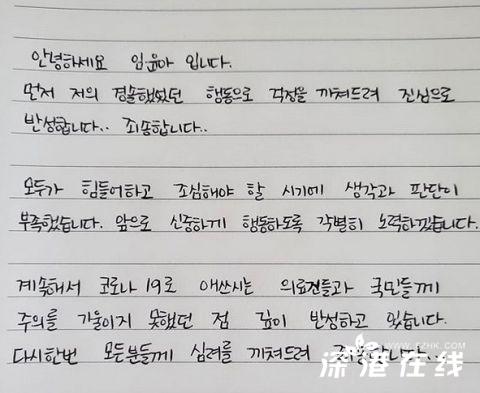 안녕하세요 임윤아 입니다.
먼저 저의 경솔했었던 행동으로 걱정을 끼쳐드려 진심으로
반성합니다.. 죄송합니다..
모두가 힘들어하고 조심해야 할 시기에 생각과 판단이
부족했습니다. 앞으로 신중하게 행동하도록 각별히 노력하겠습니다.
계속해서 코로나 19로 애쓰시는 의료진들과 국민들께
주의를 기울이지 못했던 점 깊이 반성하고 있습니다.
다시한번 모든분들께 심려를 끼쳐드려 죄송합니다..
WWW.SZHK.COM
深港在线